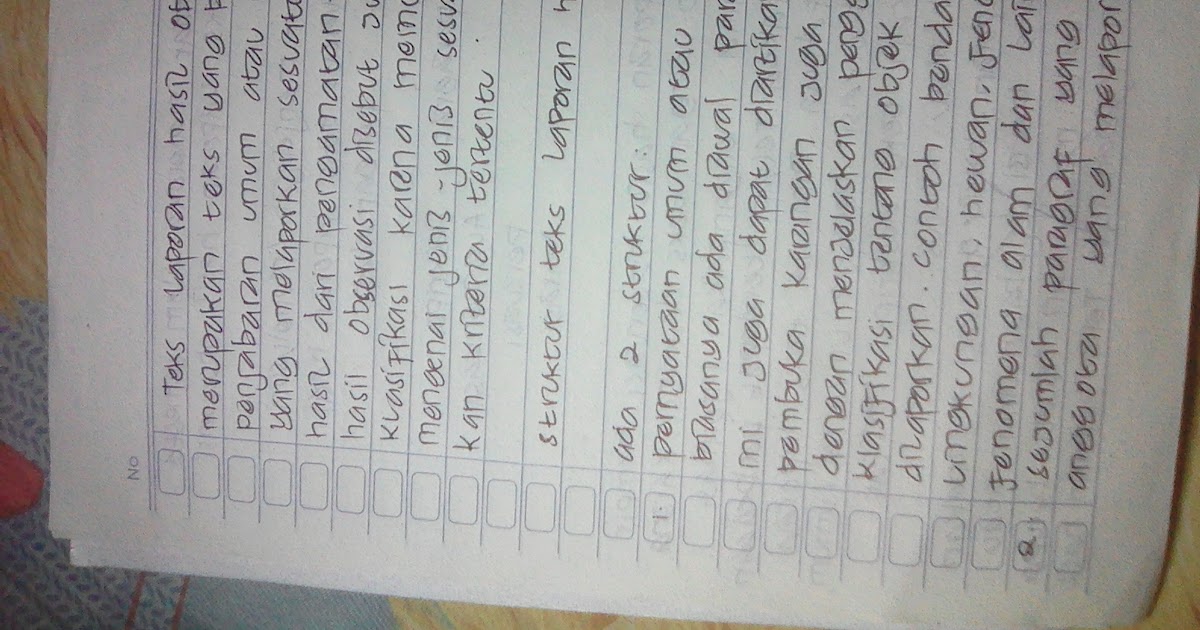 No
Teks laporan hasil ob
merupakan teks yang
penjabaran umum atau
yang melaporkan sesuatu
hasil dari pengamatan.
hasil observasi disebut ju
klasifikasi karena mem
mengenai jenis-jenis sesu
kan kriteria tertentu.
struktur teks laporan h
ada 2 struktur:
1. pernyataan umum atau
biasanya ada diawal par
ini juga dapat diartikan
pembuka karangan juga
dengan menjelaskan peng
klasifikasi tentang objek
dilaporkan. contoh benda
lingkungan, hewan, feno
fenomena alam dan lai
2. sejumlah paragraf yang
anggota yang melapor